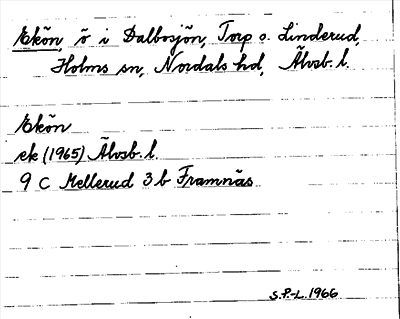 Ekön, ö i Dalbosjön, Torp o. Linderud,
Holms sn, Nordals hd, Älvsb. l.
Ekön
ek (1965) Älvsb. l.
9 C Mellerud 3 b Framnäs
S.P.-L. 1966